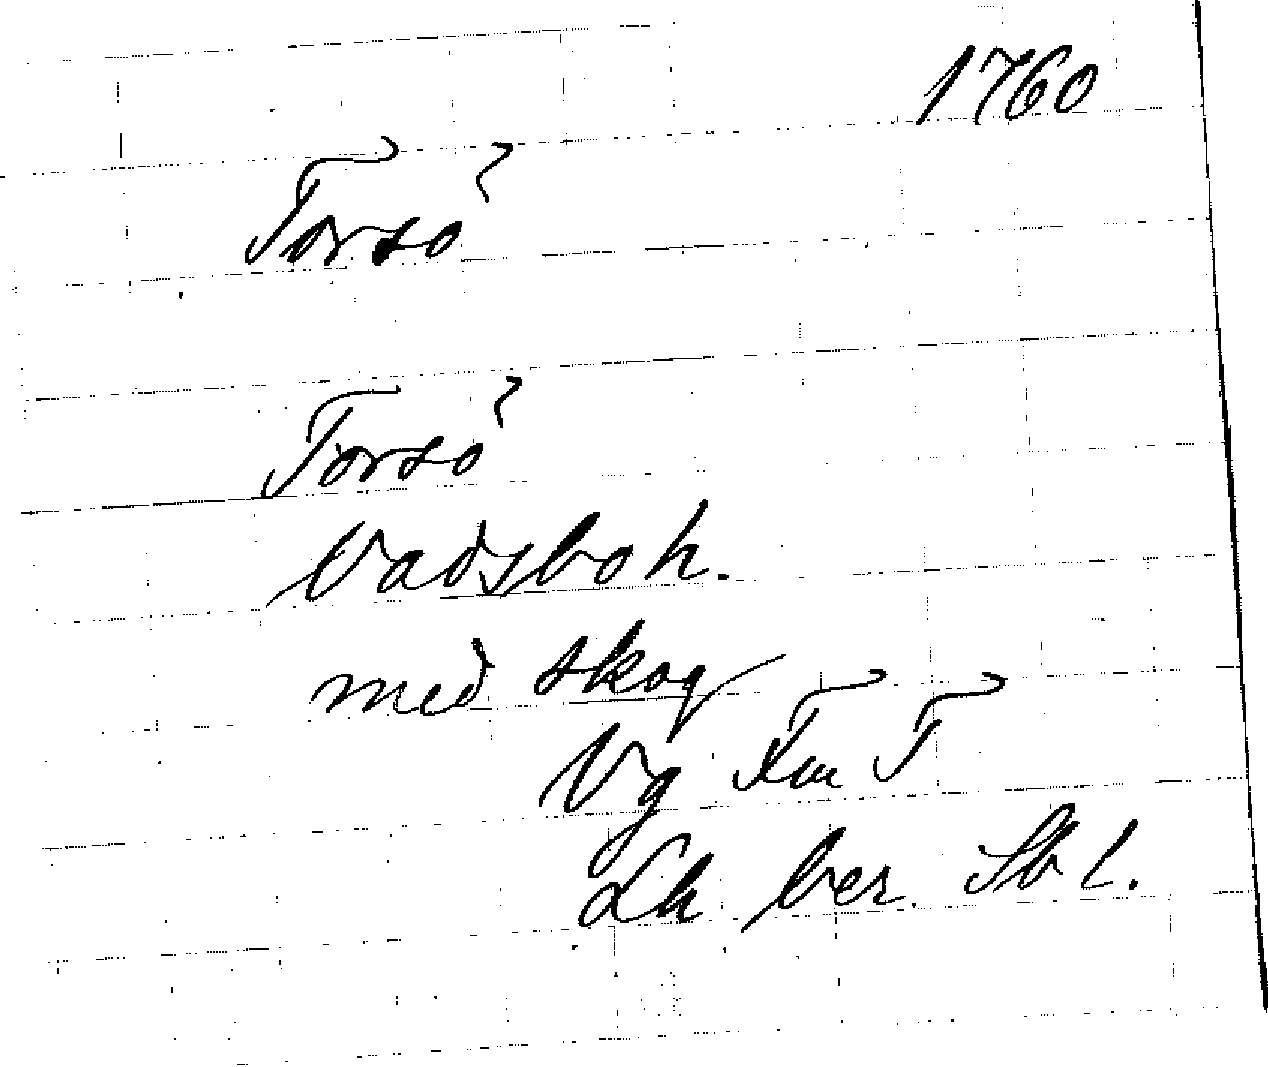 1760
Torsö
Torsö
Vadsboh.
med skog
Vg Tm T
Lh ber. Sbl.